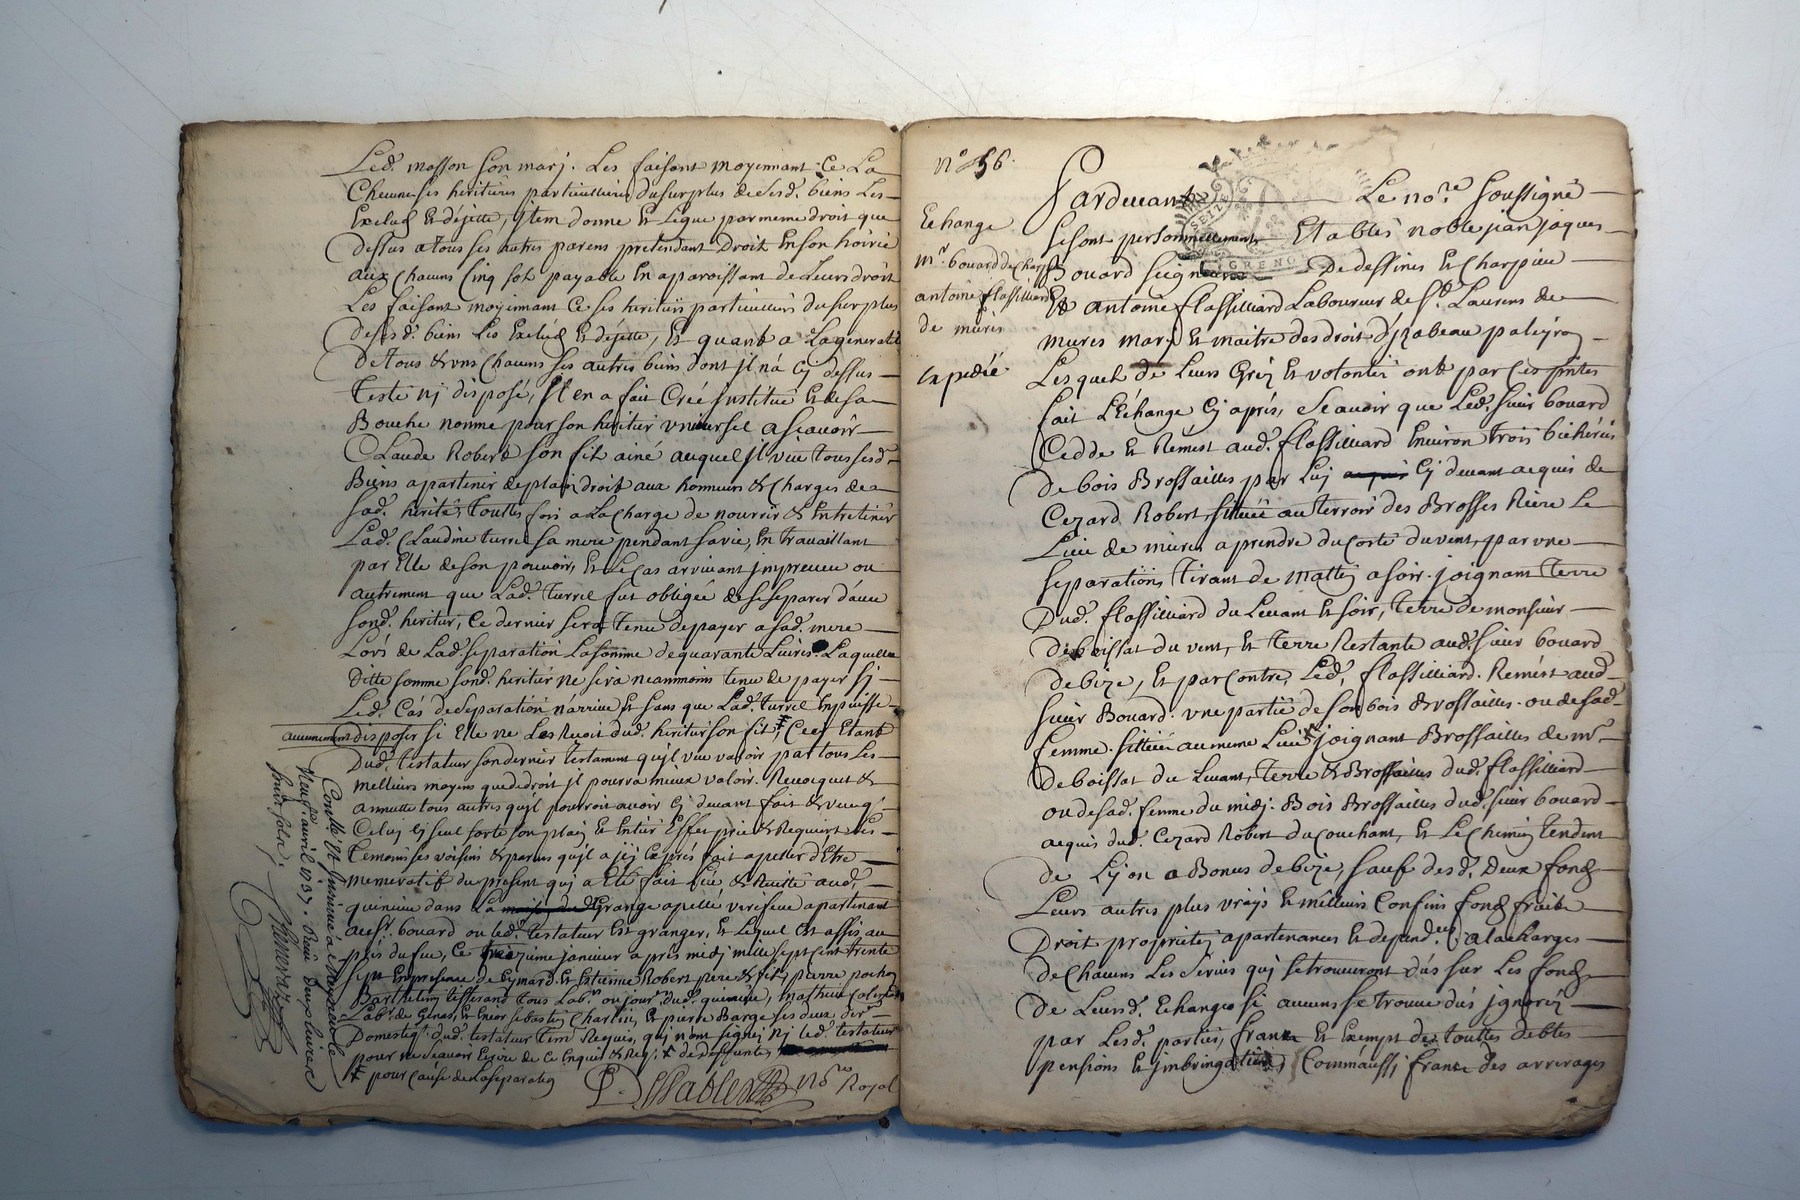 Led. mosson son marj. Les faisant moyennant Ce La
Chacune ses heritieres particulieres du surplus de sesd. biens Les
Exclud Et déjette, jtem donne Et Legue par meme droit que
dessus a tous ses autres parens pretendant Droit En son hoirie
aux chacuns Cinq sol payable En aparoissant de Leurs droit
Les faisant moyennant Ce ses heritiers particulliers du surplus
desesd. biens Les Exclud Et déjette, Et quant a La generalité
De tous & uns Chacuns ses autres biens dont jl n'a Cy dessus
testé nj disposé, jl en a fait Créé jnstitué Et de sa
Bouche nommé pour son heritier universel a sçavoir
Claude Robert son fils ainé auquel jl veut tous sesd.
Biens apartenir de plain droit aux honneurs & Charges de
sad. herité, touttes fois a La charge de nourrir & Entretenir
Lad. Claudine turrel sa mere pendant sa vie, En travaillant
par Elle de son pouvoir, Et Le Cas arrivant jmpreveu ou
autrement que Lad. turrel fut obligée de se separer d'avec
sond. heritier, Ce dernier sera tenu de payer a sad. mere
Lors de Lad. separation La somme de quarante Livres Laquelle
Ditte somme sond. heritier ne sera neanmoins tenu de payer sj
Led. Cas de separation n'arrive Et sans que Lad. turrel En puisse
aucunement disposer si Elle ne Les Reçoit dud. heritier son fils, Ceci Etant
Dud. testateur son dernier testament qu'jl veut valoir par tous Les
meilleurs moyens que de droit jl pourra mieux valoir. Revoquent &
annulle tous autres qu'jl pourroit avoir Cj devant fait & veut q.
Celuy Cj seul sorte son plain Et Entier Effet prie & Requiert Les
Temoins ses voisins & parens qu'jl a jcj Exprés fait apeller d'Etre
memoratif du present quj a Eté fait Leu, & Recitté aud.
quincieu dans La Grange apellé apartenant
aud. sr. bouard ou led. testateur Est granger, Et Lequel Est assis au
prés du feu, Ce treizieme janvier a prés midj mille sept Cent trente
sept En presence de Eymard Et Estienne Robert pere & fils, pierre pochoy
Barthelemy tisserand tous Lab.rs ou jour. dud. quincieu, mathieu
Lab. de Genas, Et Encor sebastien Charlin Et pierre Barge ses deux
Domestiq. dud. testateur Tem. Requis, quj n'ont signé nj led. testateur
pour ne sçavoir Ecrire de Ce Enquis & Req.
pour Cause de La separation
P. Chablex No.re Royal
Conllé Et jnsinué a
Neuf.e avril 1737. Reçu deux livres
douze sols.
N° 156.
Echange
Mr. bouard de Charpieu
antoine flassilliard
de mûres
Expedié
Pardevant Le no.re soussigné
se sont personnellement Etablis noble jean jaques
Bouard seigneur De dessines Et Charpieu
Et antoine flassilliard Laboureur de St. Laurens de
mures mary Et maitre des droit d'jzabeau paleyroy
Lesquels de Leurs Grés Et volontés ont par Ces p̃ntes
fait L'Echange Cj aprés, sçavoir que Led. sieur bouard
Cedde Et Rémest aud. flassilliard Environ trois bicherées
de bois Brossailles par Luj Cj devant acquis de
Cezard Robert, sittuée au terroir des Brosses Riere Le
Lieu de mures a prendre du Costé du vent, par une
separation, tirant de mattin a soir. joignant terre
Dud. flassilliard du Levant Et soir, terre de monsieur
de boissat du vent, Et terre Restante aud. sieur bouard
de bize, Et par Contre, Led. flassilliard. Remést aud.
sieur Bouard. une partie de son bois Brossailles. ou de sad.
femme. sittuée au meme Lieu joignant Brossailles de mr.
De boissat du Levant, terre & Brossailles dud. flassilliard
ou de sad. femme du midj. Bois Brossailles dud. sieur bouard
acquis dud. Cezard Robert du Couchant, Et Le Chemin tendent
de Lyon a Bonnes de bize, sauf desd. Deux fond
Leurs autres plus vrays Et meilleurs Confins fond fruits
Droit proprietés apartenances Et depend.ces a la charges
de Chacuns Les servis quj se trouveront d'us sur Les fond
de Leursd. Echanges si aucuns se trouve dus jgnorés
par Lesd. parties, franc Et Exempt de touttes debtes
pensions Et jmbringations, Comm'aussi franc des arrerages